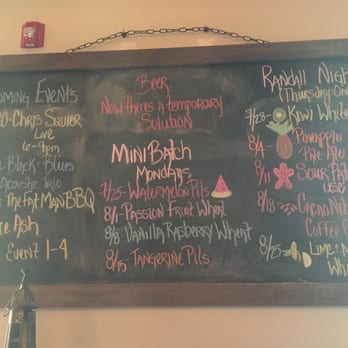 oming Events
0-Chris Squier
Live
6-9pm
Black & Blues
Acoustic Trio
The Fat Man BBQ
Ash
Event 1-4
Beer
Now there's a temporary
Solution
Mini Batch
Mondays
7/25-Watermelon Pils
8/1-Passion Fruit Wheat
8/8-Vanilla Rasberry Wheat
8/15-Tangerine Pils
Randall Nigh
(Thursday-Onl
7/28-Kiwi White
8/4-Pineapple
Pale Ale
8/11-Sour Pat
use
8/18-Cacao Nib
Coffee
8/25-Lime